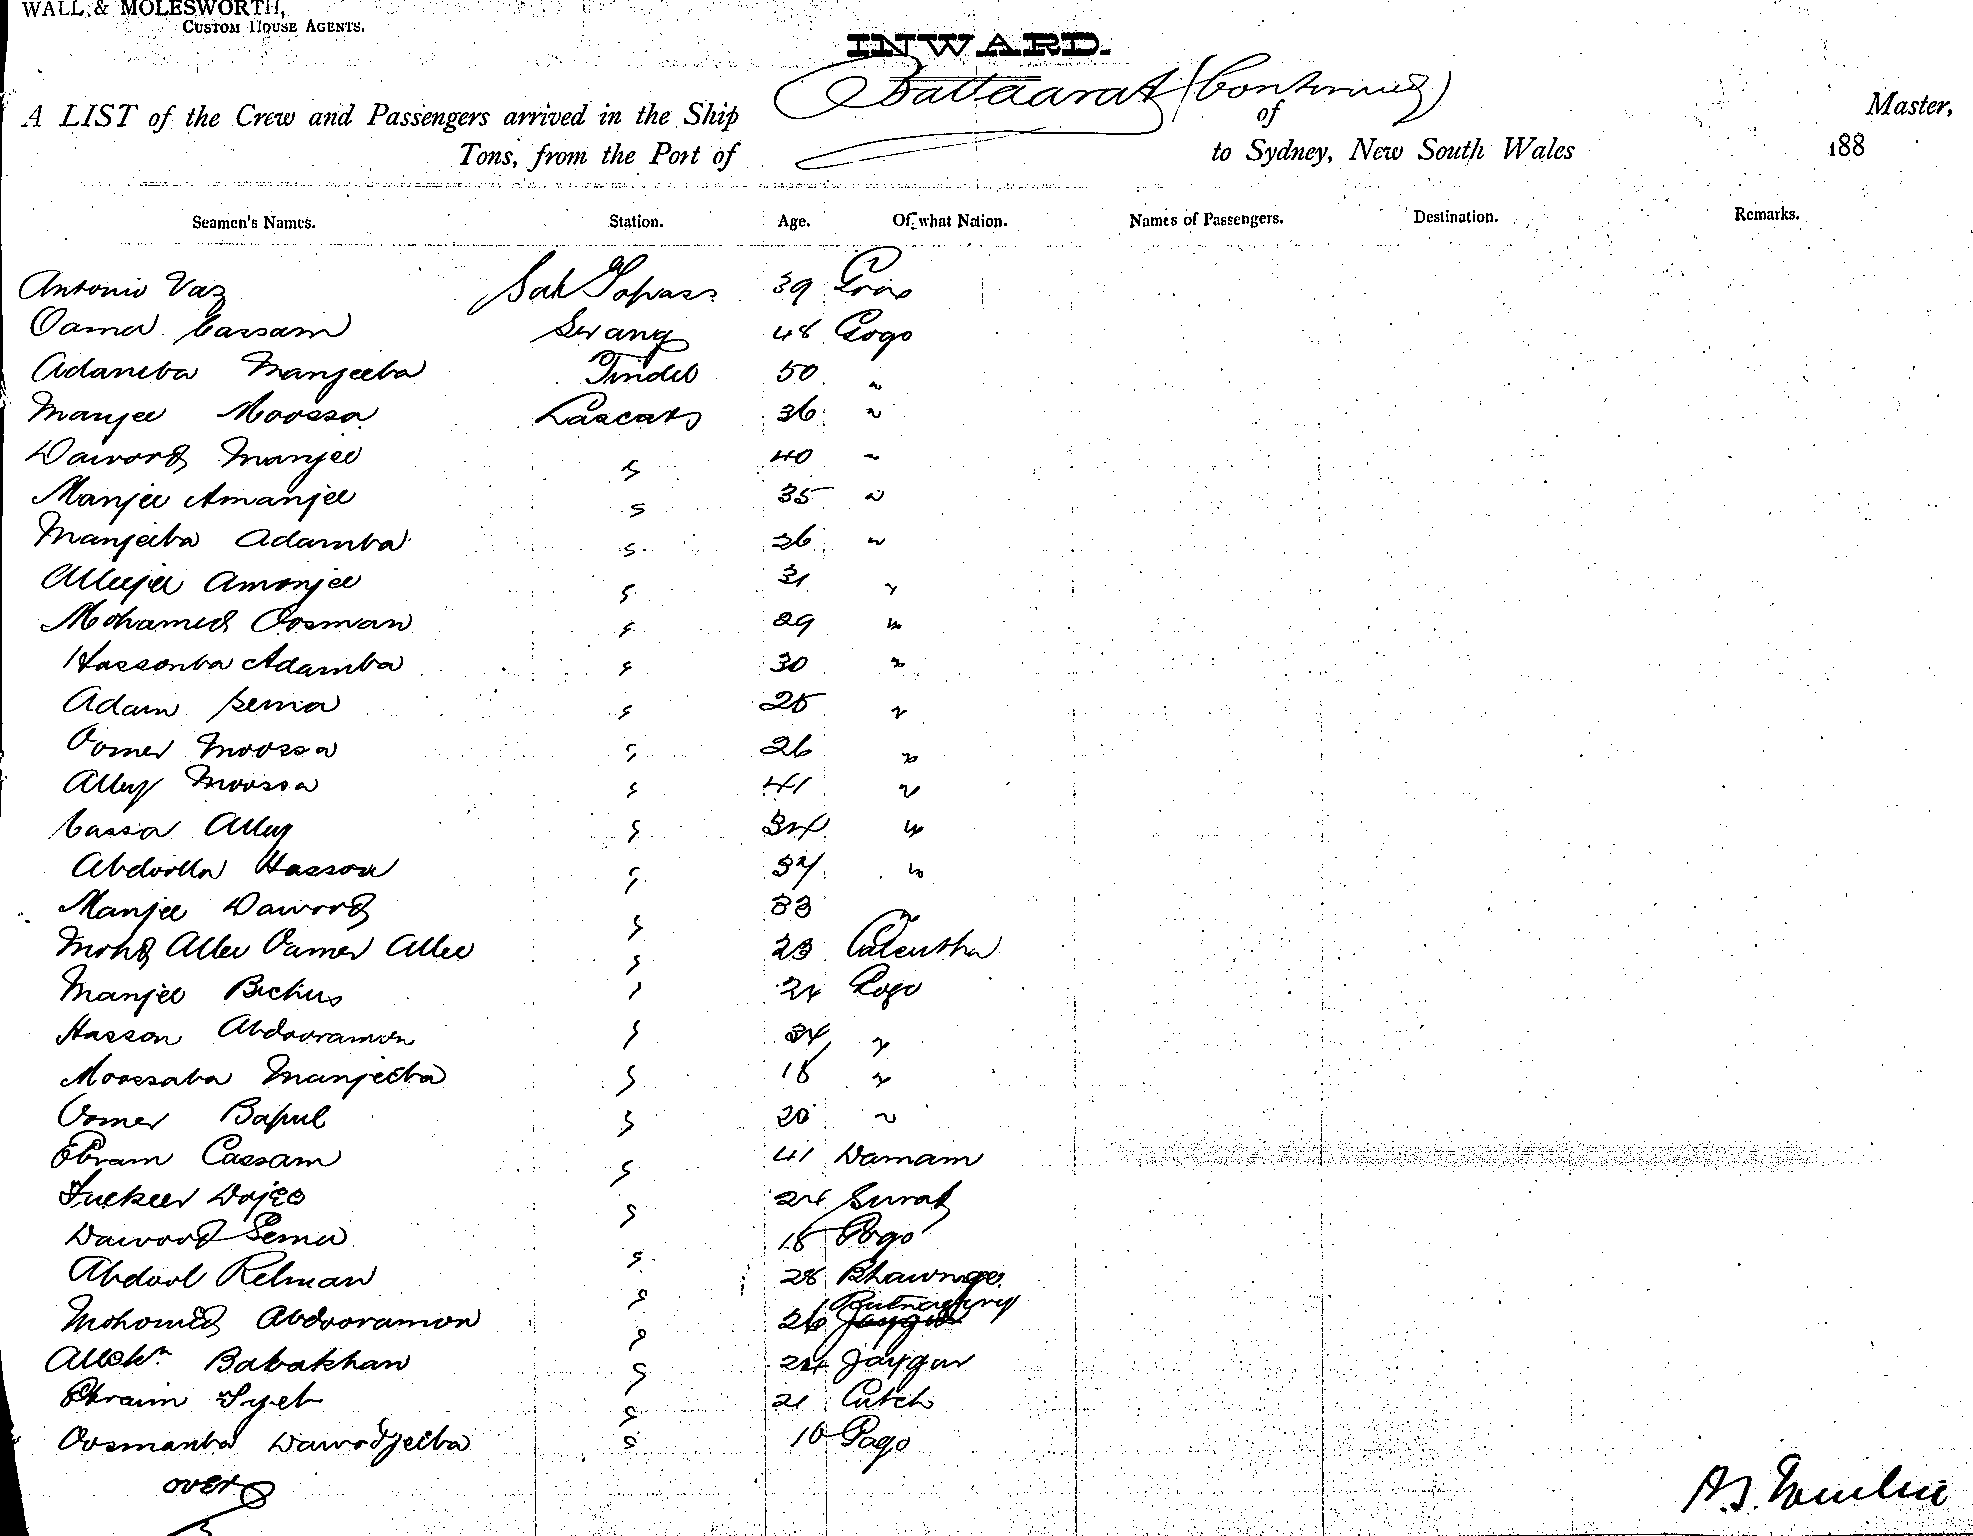 WALL & MOLESWORTH,
CUSTOM HOUSE AGENTS.
INWARD.
Ballaarat (Continued)
A LIST of the Crew and Passengers arrived in the Ship of Master,
Tons, from the Port of to Sydney, New South Wales 188
Seamen's Names. Station. Age. Of what Nation. Names of Passengers. Destination. Remarks.
Antonio Vaz 39 Goa
Oamer Cassam Serang 48 Gogo
Adamba Manjeeba Tindel 50 "
Manjee Moossa Lascars 36 "
Dawood Manjee " 40 "
Manjee Amanjee " 35 "
Manjeeba Adamba " 36 "
Alleejee Amonjee " 31 "
Mohamed Oosman " 29 "
Hassonba Adamba " 30 "
Adam Jema " 25 "
Oomer Moossa " 26 "
Alley Moossa " 41 "
Cassa Alley " 34 "
Abdoolla Hasson " 34 "
Manjee Dawood " 33 "
Mohd Allee Oamer Allee " 23 Calcutta
Manjee Bechus " 24 Gogo
Hasson Abdooramon " 34 "
Moossaba Manjeeba " 18 "
Oomer Bapul " 20 "
Ebram Cassam " 41 Damam
Fuckeer Dojee " 24 Surat
Dawood Jema " 18 Gogo
Abdool Relman " 28 Bhawnge.
Mohomed Abdooramon " 26 Rutnaghry
Babakhan " 24 Jaygur
Ebraim Syet " 21 Cutch
Oosmanba Dawodjeeba " 16 Gogo
over